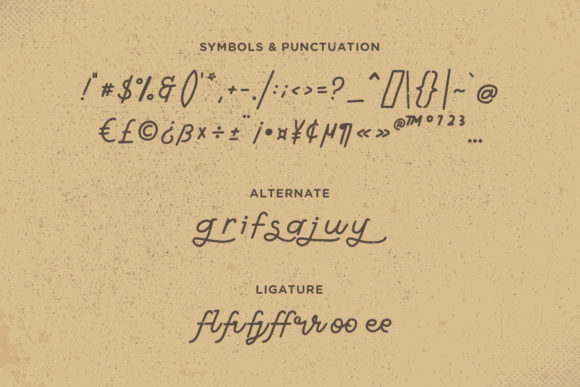 SYMBOLS & PUNCTUATION
!"#$%&()'*,+-./:;<>=?_^[]\{}|~`@
€£©¿β×÷±¨¡•¤¥¢µ¶«»@™°123…
ALTERNATE
grifsajwy
LIGATURE
fl fr fy ff rr oo ee